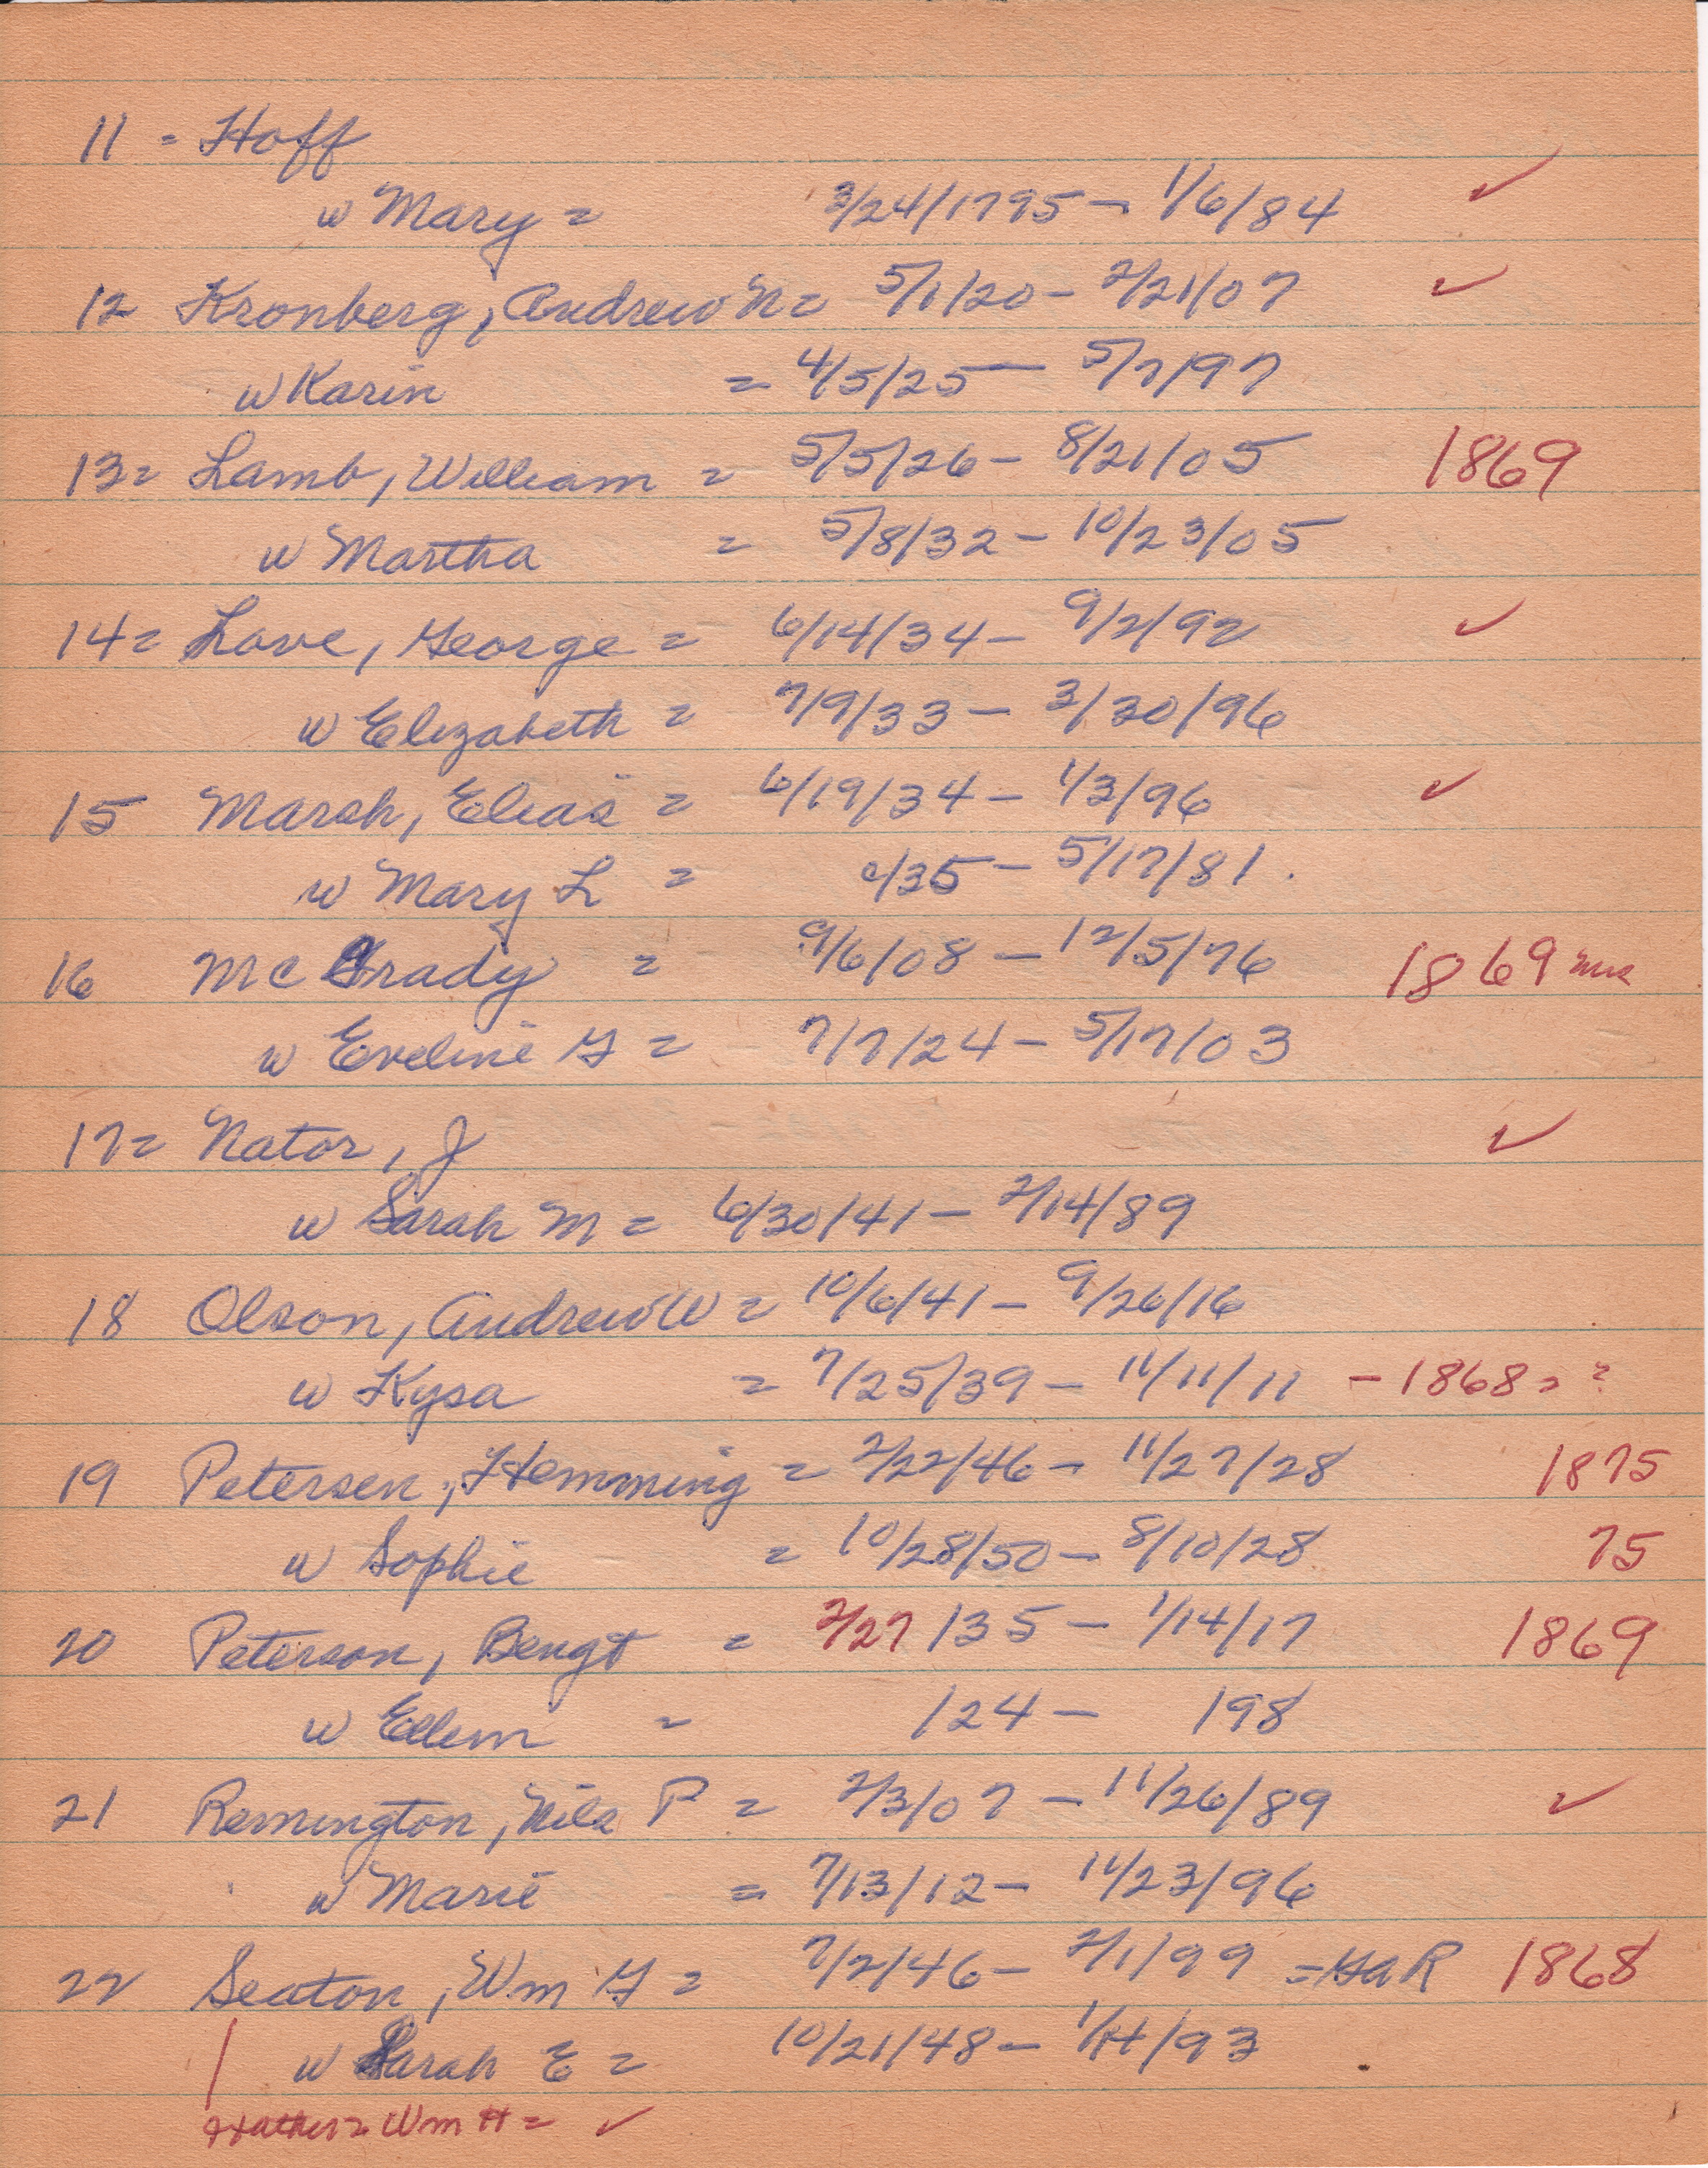 11 = Hoff
w Mary = 3/24/1795 - 1/6/84 ✓
12 Kronberg, Andrew N = 5/1/20 - 2/21/07 ✓
w Karin = 4/5/25 - 5/7/97
13 = Lamb, William = 5/5/26 - 8/21/05 1869
w Martha = 5/8/32 - 10/23/05
14 = Love, George = 6/14/34 - 9/2/92 ✓
w Elizabeth = 7/9/33 - 3/30/96
15 Marsh, Elias = 6/19/34 - 1/3/96 ✓
w Mary L = /35 - 5/17/81.
16 Mc Grady = 9/6/08 - 12/5/76 1869
w Eveline G = 7/7/24 - 5/17/03
17 = Nator, J ✓
w Sarah M = 6/30/41 - 2/14/89
18 Olson, Andrew W = 10/6/41 - 9/26/16
w Kysa = 7/25/39 - 11/11/11 - 1868 = ?
19 Petersen, Hemming = 2/22/46 - 11/27/28 1875
w Sophie = 10/28/50 - 8/10/28 75
20 Peterson, Bengt = 2/27/35 - 1/14/17 1869
w Ellem = /24 - /98
21 Remington, Nils P = 2/3/07 - 11/26/89 ✓
w Marie = 7/13/12 - 11/23/96
22 Seaton, Wm G = 7/2/46 - 2/1/99 = GAR 1868
w Sarah E = 10/21/48 - 1/14/93
Father = Wm H = ✓